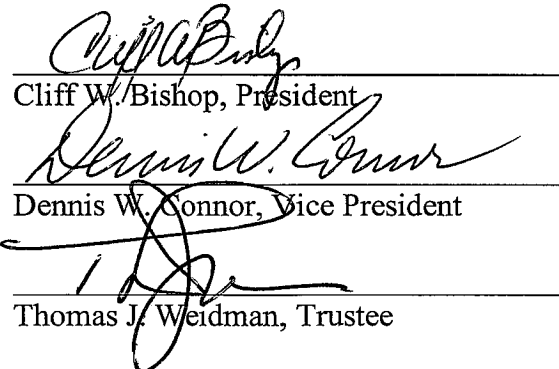 Cliff W. Bishop, President
Dennis W. Connor
Dennis W. Connor, Vice President
Thomas J. Weidman, Trustee